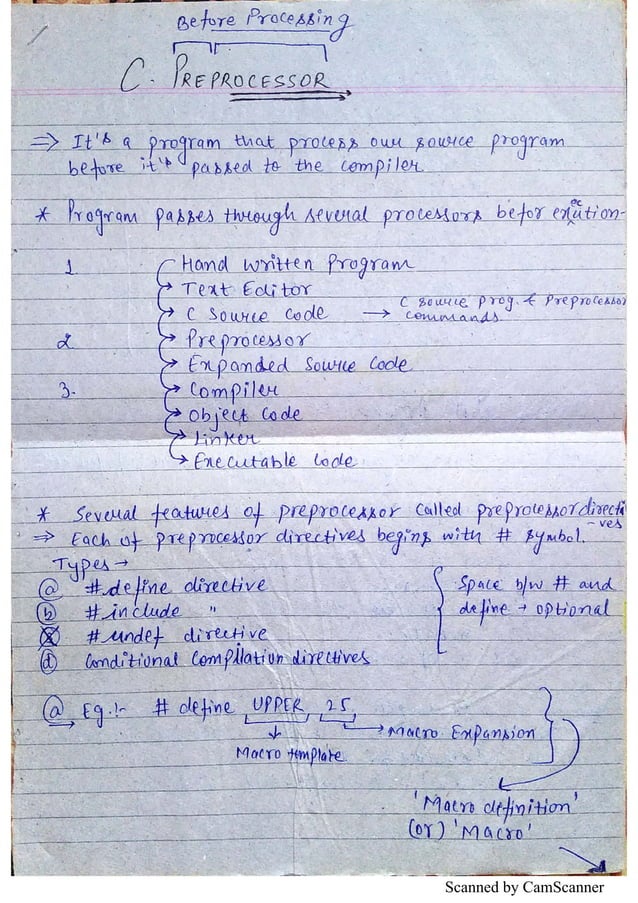 Before Processing
C. PREPROCESSOR
⇒ It's a program that process our source program
before it's passed to the compiler
* Program passes through several processors befor execution-
1 Hand written Program
→ Text Editor
→ C source code → C source prog. + Preprocessor
commands
2 → Preprocessor
→ Expanded Source Code
3. → Compiler
→ Object Code
→ Linker
→ Executable Code
* Several features of preprocessor called preprocessor directi
-ves
⇒ Each of preprocessor directives begins with # symbol.
Types →
(a) #define directive
(b) #include "
#undef directive
(d) Conditional Compilation directives
Space b/w # and
define → optional
(a) Eg.:- # define UPPER 25
→ Macro Expansion
Macro template
'Macro definition'
(or) 'Macro'
Scanned by CamScanner